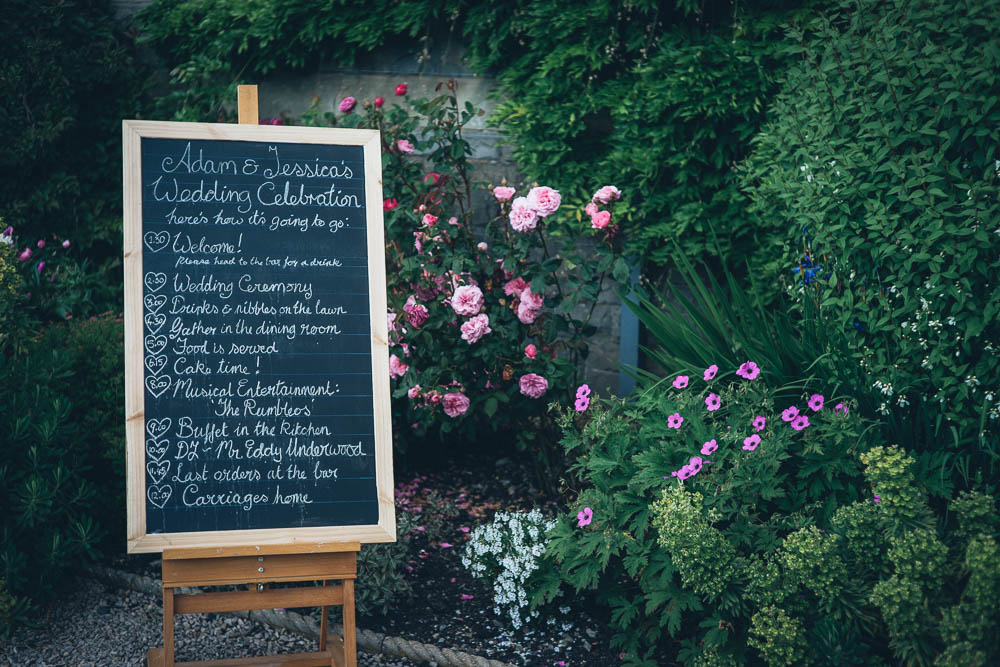 Adam & Jessica's
Wedding Celebration
here's how it's going to go:
1.30 Welcome!
please head to the bar for a drink
2.30 Wedding Ceremony
Drinks & nibbles on the lawn
4.30 Gather in the dining room
Food is served
6.15 Cake time!
8.00 Musical Entertainment:
'The Rumbleos'
9.20 Buffet in the kitchen
DJ - Mr Eddy Underwood
Last orders at the bar
Carriages home